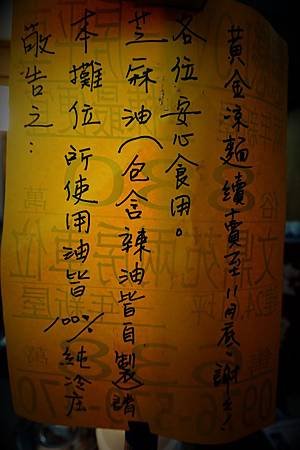 敬告之：
本攤位所使用油皆100%純冷压
芝麻油(包含辣油皆自製請
各位安心食用。
黃金凉麵續賣至11月底、謝々!